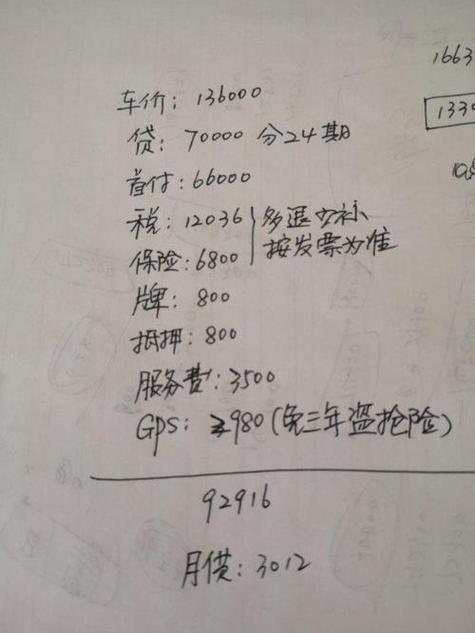 1663
车价: 136000
贷: 70000 分24期
首付: 66000
税: 12036 多退少补
保险: 6800 按发票为准
牌: 800
抵押: 800
服务费: 3500
GPS: 2980 (免三年盗抢险)
92916
月供: 3012